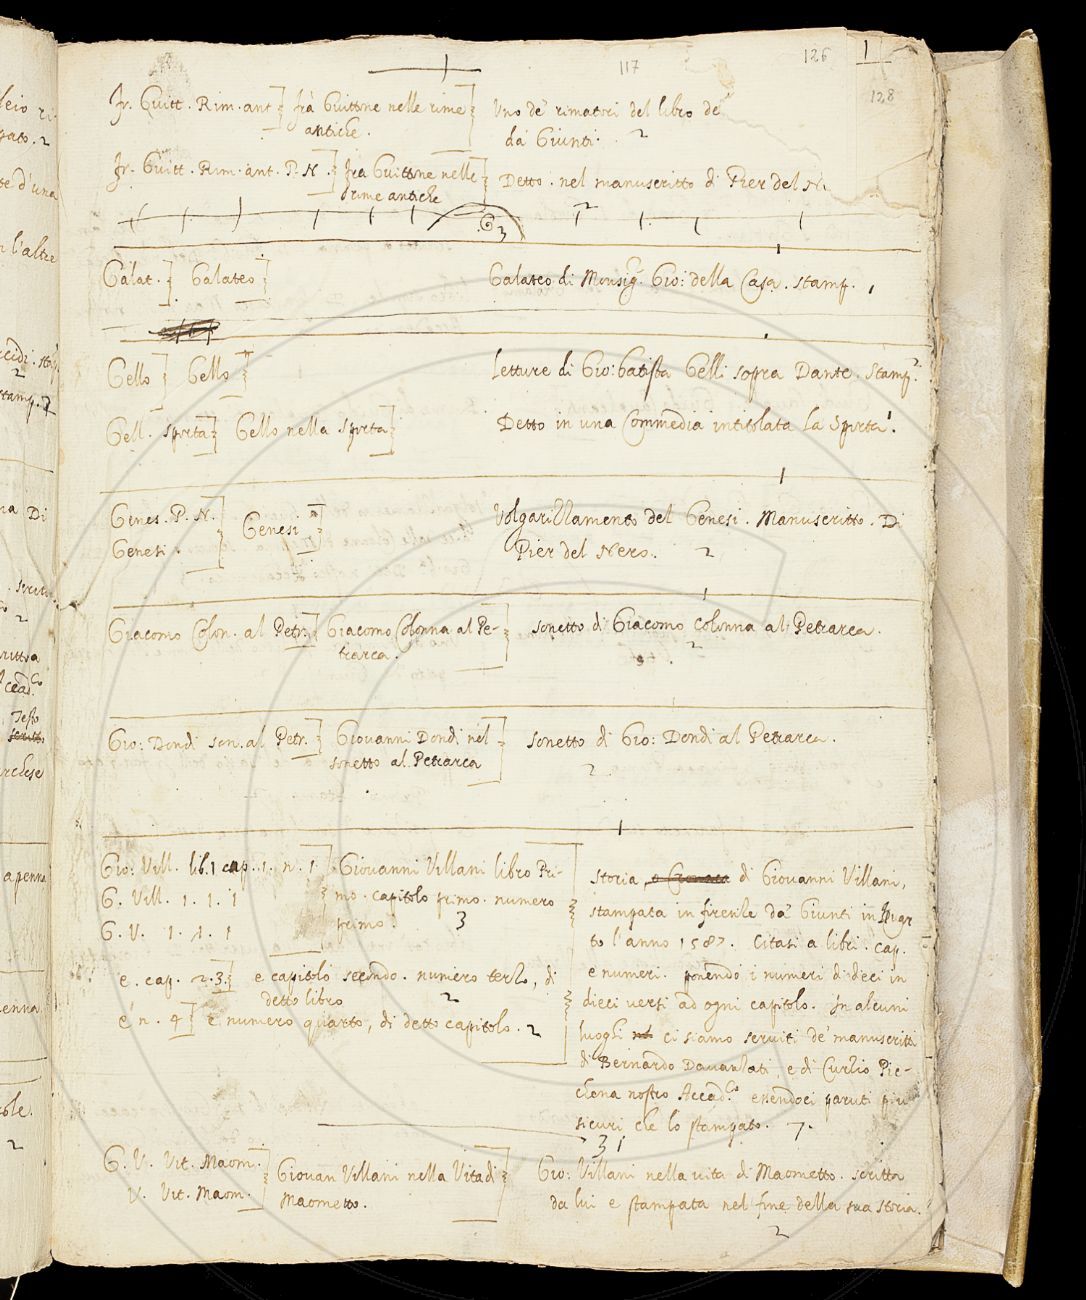 117 126 1
128
Fr. Guitt. Rim. ant ] frà Guittone nelle rime ] Uno de' rimatori del libro de
antiche. da Giunti. 2
Fr. Guitt. Rim. ant. P. N. ] fra Guittone nelle ] Detto. nel manuscritto di Pier del Ne
rime antiche 2
G 3
Galat. ] Galateo ] Galateo di Monsig. Gio: della Casa. stamp. 1
Gello ] Gello ] Letture di Gio: batista Gelli sopra Dante. stamp.
Gell. sporta ] Gello nella sporta ] Detto in una Commedia intitolata La Sporta.
Genes. P. N. ] Genesi ] Volgarizzamento del Genesi. Manuscritto. Di
Genesi. Pier del Nero. 2
Giacomo Colon. al Petr. ] Giacomo Colonna al Pe- ] sonetto di Giacomo Colonna al Petrarca.
trarca. 2
Gio: Dondi son. al Petr. ] Giovanni Dondi nel ] sonetto di Gio: Dondi al Petrarca.
sonetto al Petrarca 2
Gio: Vill. lib. 1 cap. 1. n. 1 Giovanni Villani libro Pri-
G. Vill. 1. 1. 1 mo. capitolo primo. numero
G. V. 1. 1. 1 primo. 3
e. cap. 2. 3. ] e capitolo secondo. numero terzo, di
detto libro 2
e n. 4 ] e numero quarto, di detto capitolo. 2
storia, o Cronaca di Giovanni Villani,
stampata in firenze da' Giunti in quar
to l'anno 1587. Citasi a libri. cap.
e numeri. ponendo i numeri di dieci in
dieci versi ad ogni capitolo. in alcuni
luoghi ci siamo serviti de' manuscritti
di Bernardo Davanzati, e di Curzio Pic-
chena nostro Accad.co essendoci paruti piu
sicuri che lo stampato. 7.
31
G. V. Vit. Maom. ] Giovan Villani nella Vita di ] Gio: Villani nella vita di Maometto. scritta
V. Vit. Maom. Maometto. da lui e stampata nel fine della sua storia.
2